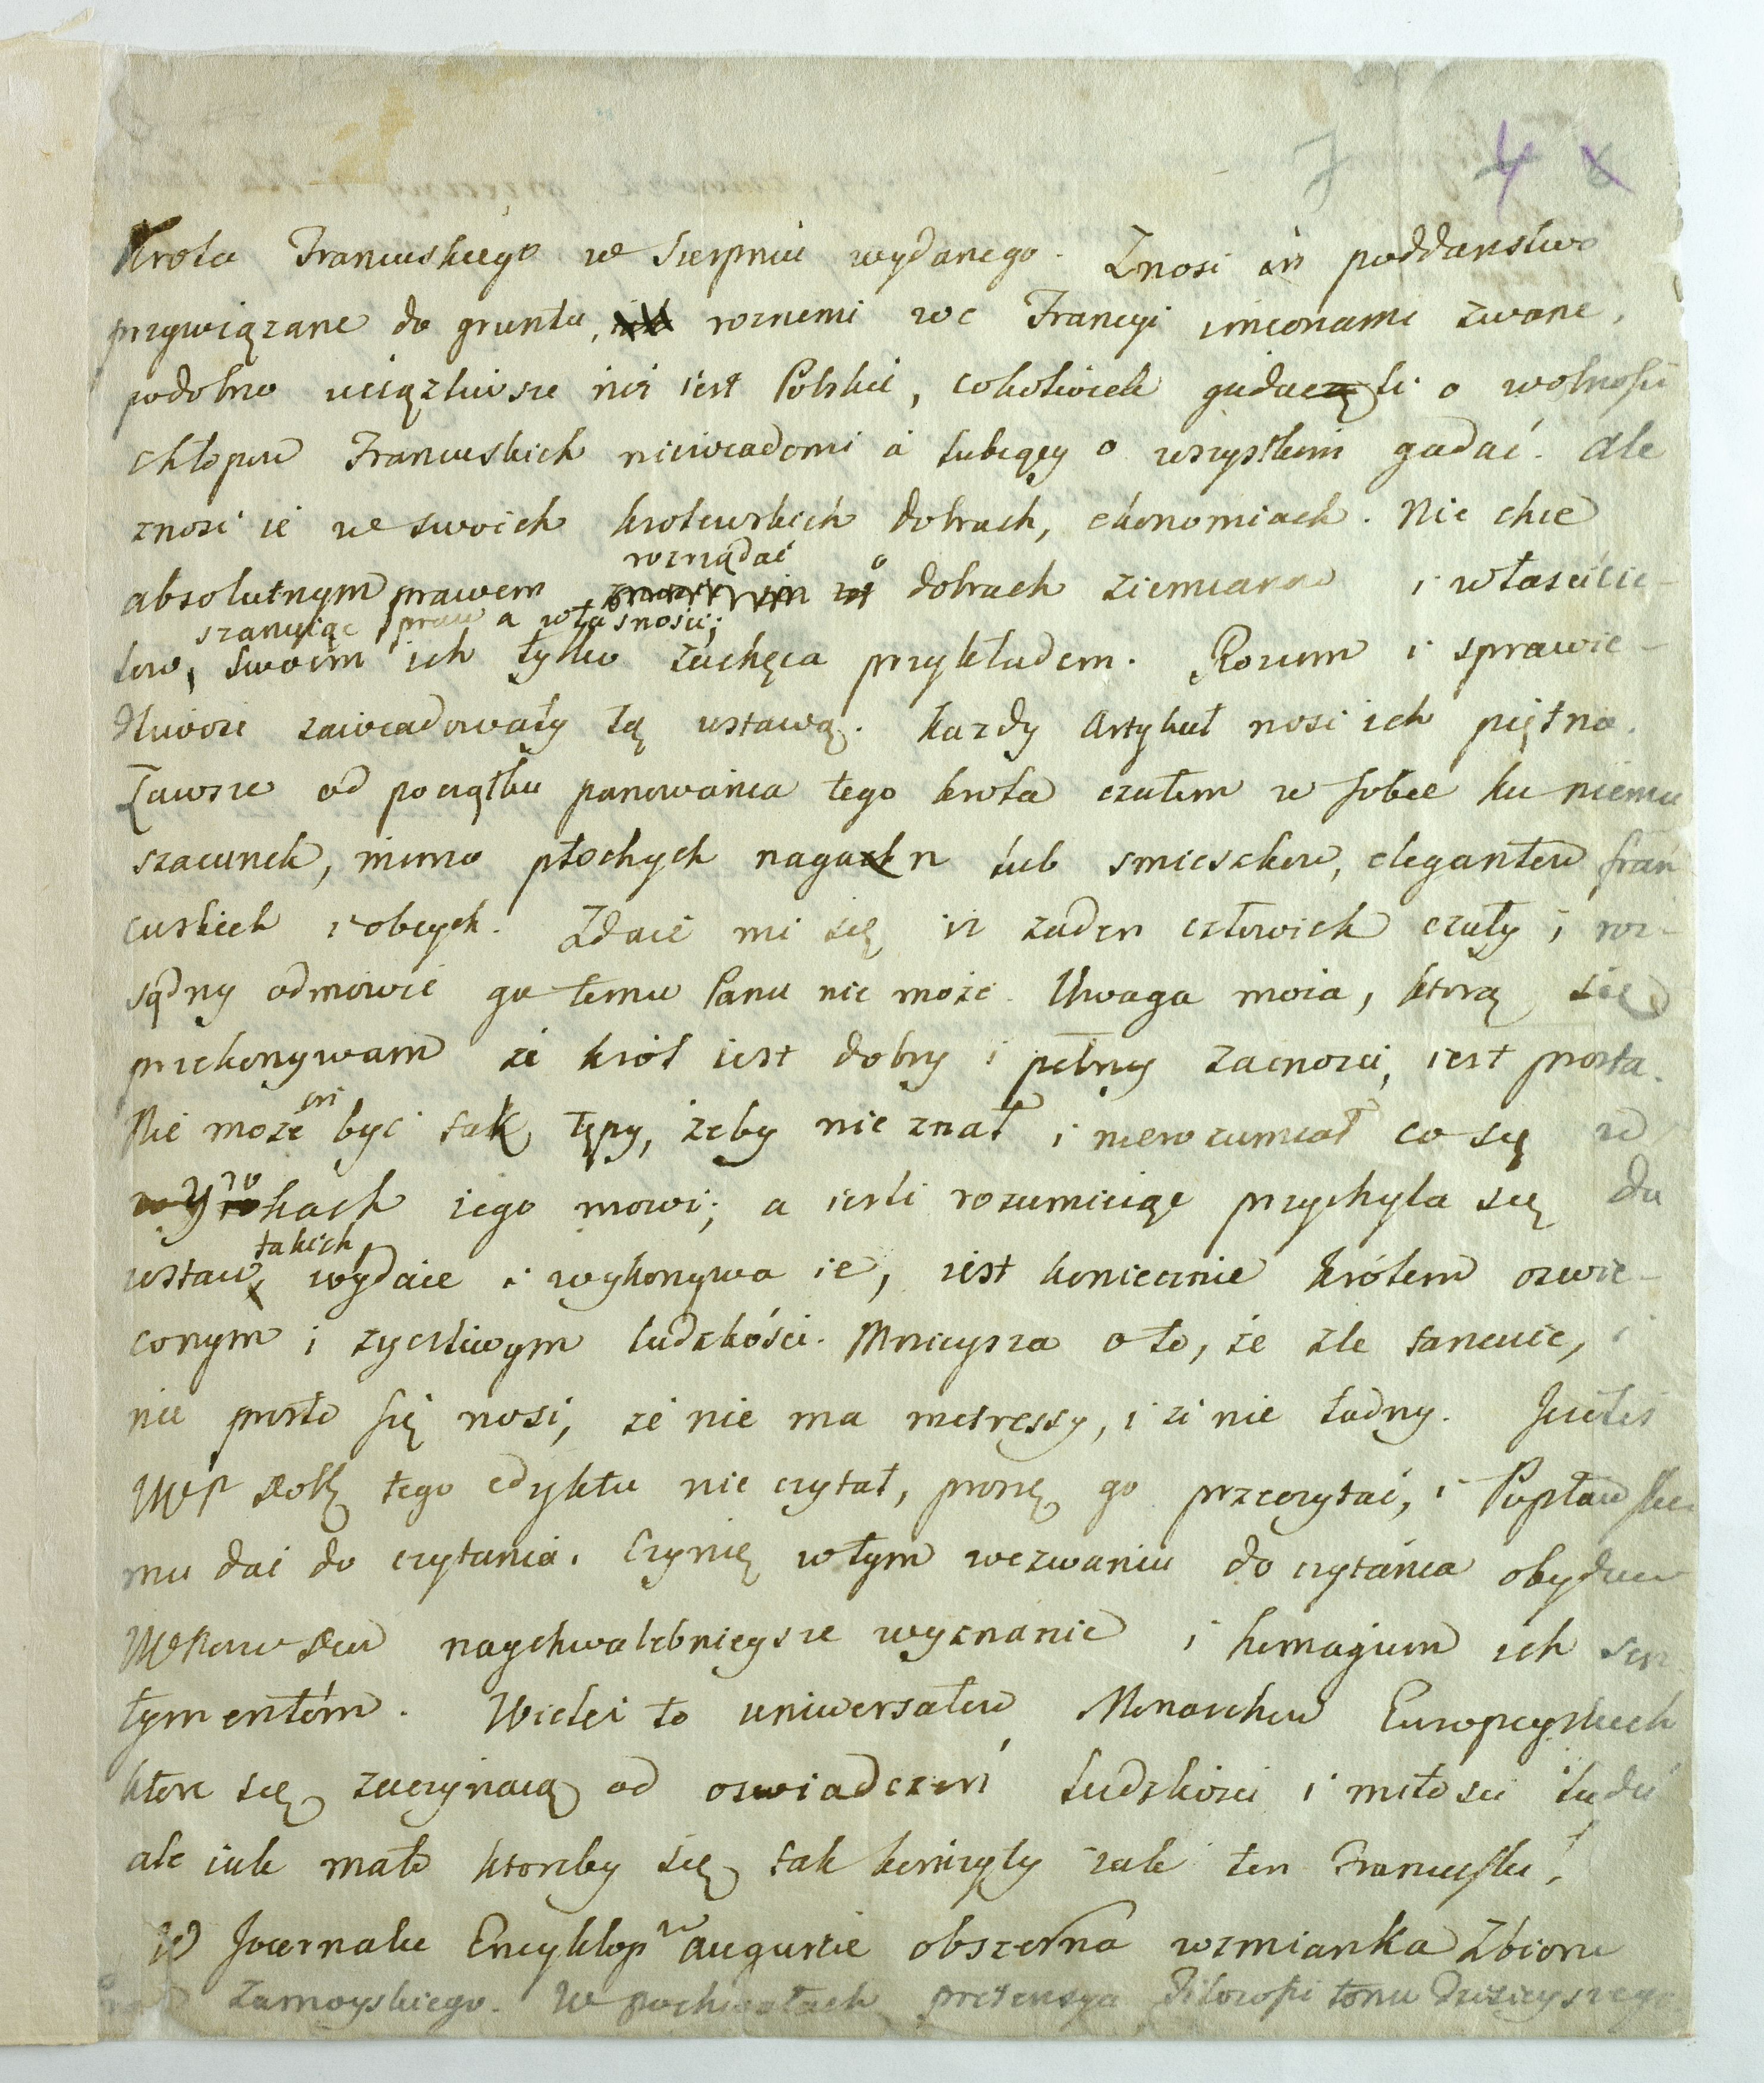 4
Krola Francuskiego w Sierpniu wydanego. Znosi in poddanstwo
przywiązane do gruntu, roznemi we Francyi imionami zwane,
podobno uciązliwsze niż iest Polskie, cokolwiek gadaczli o wolności
chłopow Francuskich niewiadomi a lubiący o wszystkim gadać. Ale
znosi ie we swoich krolewskich dobrach, ekonomiach. Nie chce
absolutnym prawem rozrządać o dobrach ziemianow i właścicie-
low, szanuiąc prawa własności; swoim ich tylko zachęca przykładem. Rozum i sprawie-
dliwość zawiadowały tą ustawą. Kazdy Artykuł nosi ich piętno.
Zawsze od początku panowania tego krola czułem w sobie ku niemu
szacunek, mimo płochych nagan lub smieszkow, elegantow fran
cuskich i obcych. Zdaie mi się iż zaden człowiek czuły i roz-
sądny odmowić go temu Panu nie może. Uwaga moia, ktorą się
przekonywam że król iest dobry i pełny zacności, iest prosta.
Nie może on być tak tępy, żeby nie znał i nierozumiał co się w
rokach iego mowi; a iesli rozumieiąc przychyla się do
ustaw takich, wydaie i wykonywa ie, iest koniecznie królem oswie-
conym i zyczliwym ludzkości. Mnieysza o to, że źle tancuie, i
nie prosto się nosi, że nie ma metressy, i że nie ładny. Jeżeliś
tego edyktu nie czytał, proszę go przeczytać, i Popławskie
mu dać do czytania. Czynię w tym wezwaniu do czytania obydwu
naychwalebnieysze wyznanie i homagium ich sen
tymentóm. Wieleż to uniwersałow Monarchow Europeyskich
ktore się zaczynaią od oswiadczeń ludzkości i miłosci ludu
ale iak mało ktoreby się tak kończyły iak ten Francuski!
W Journalu Encyklop w auguscie obszerna wzmianka Zbioru
Zamoyskiego. W pochwałach pretensya Filozofii tonu